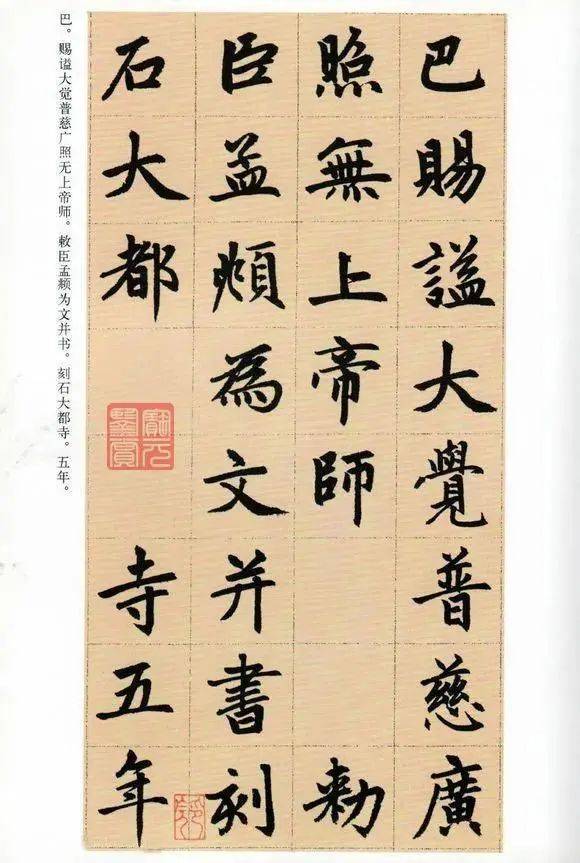 巴賜謚大覺普慈廣
照無上帝師 敕
臣孟頫為文并書刻
石大都 寺五年
巴。赐谥大觉普慈广照无上帝师。敕臣孟頫为文并书。刻石大都寺。五年。